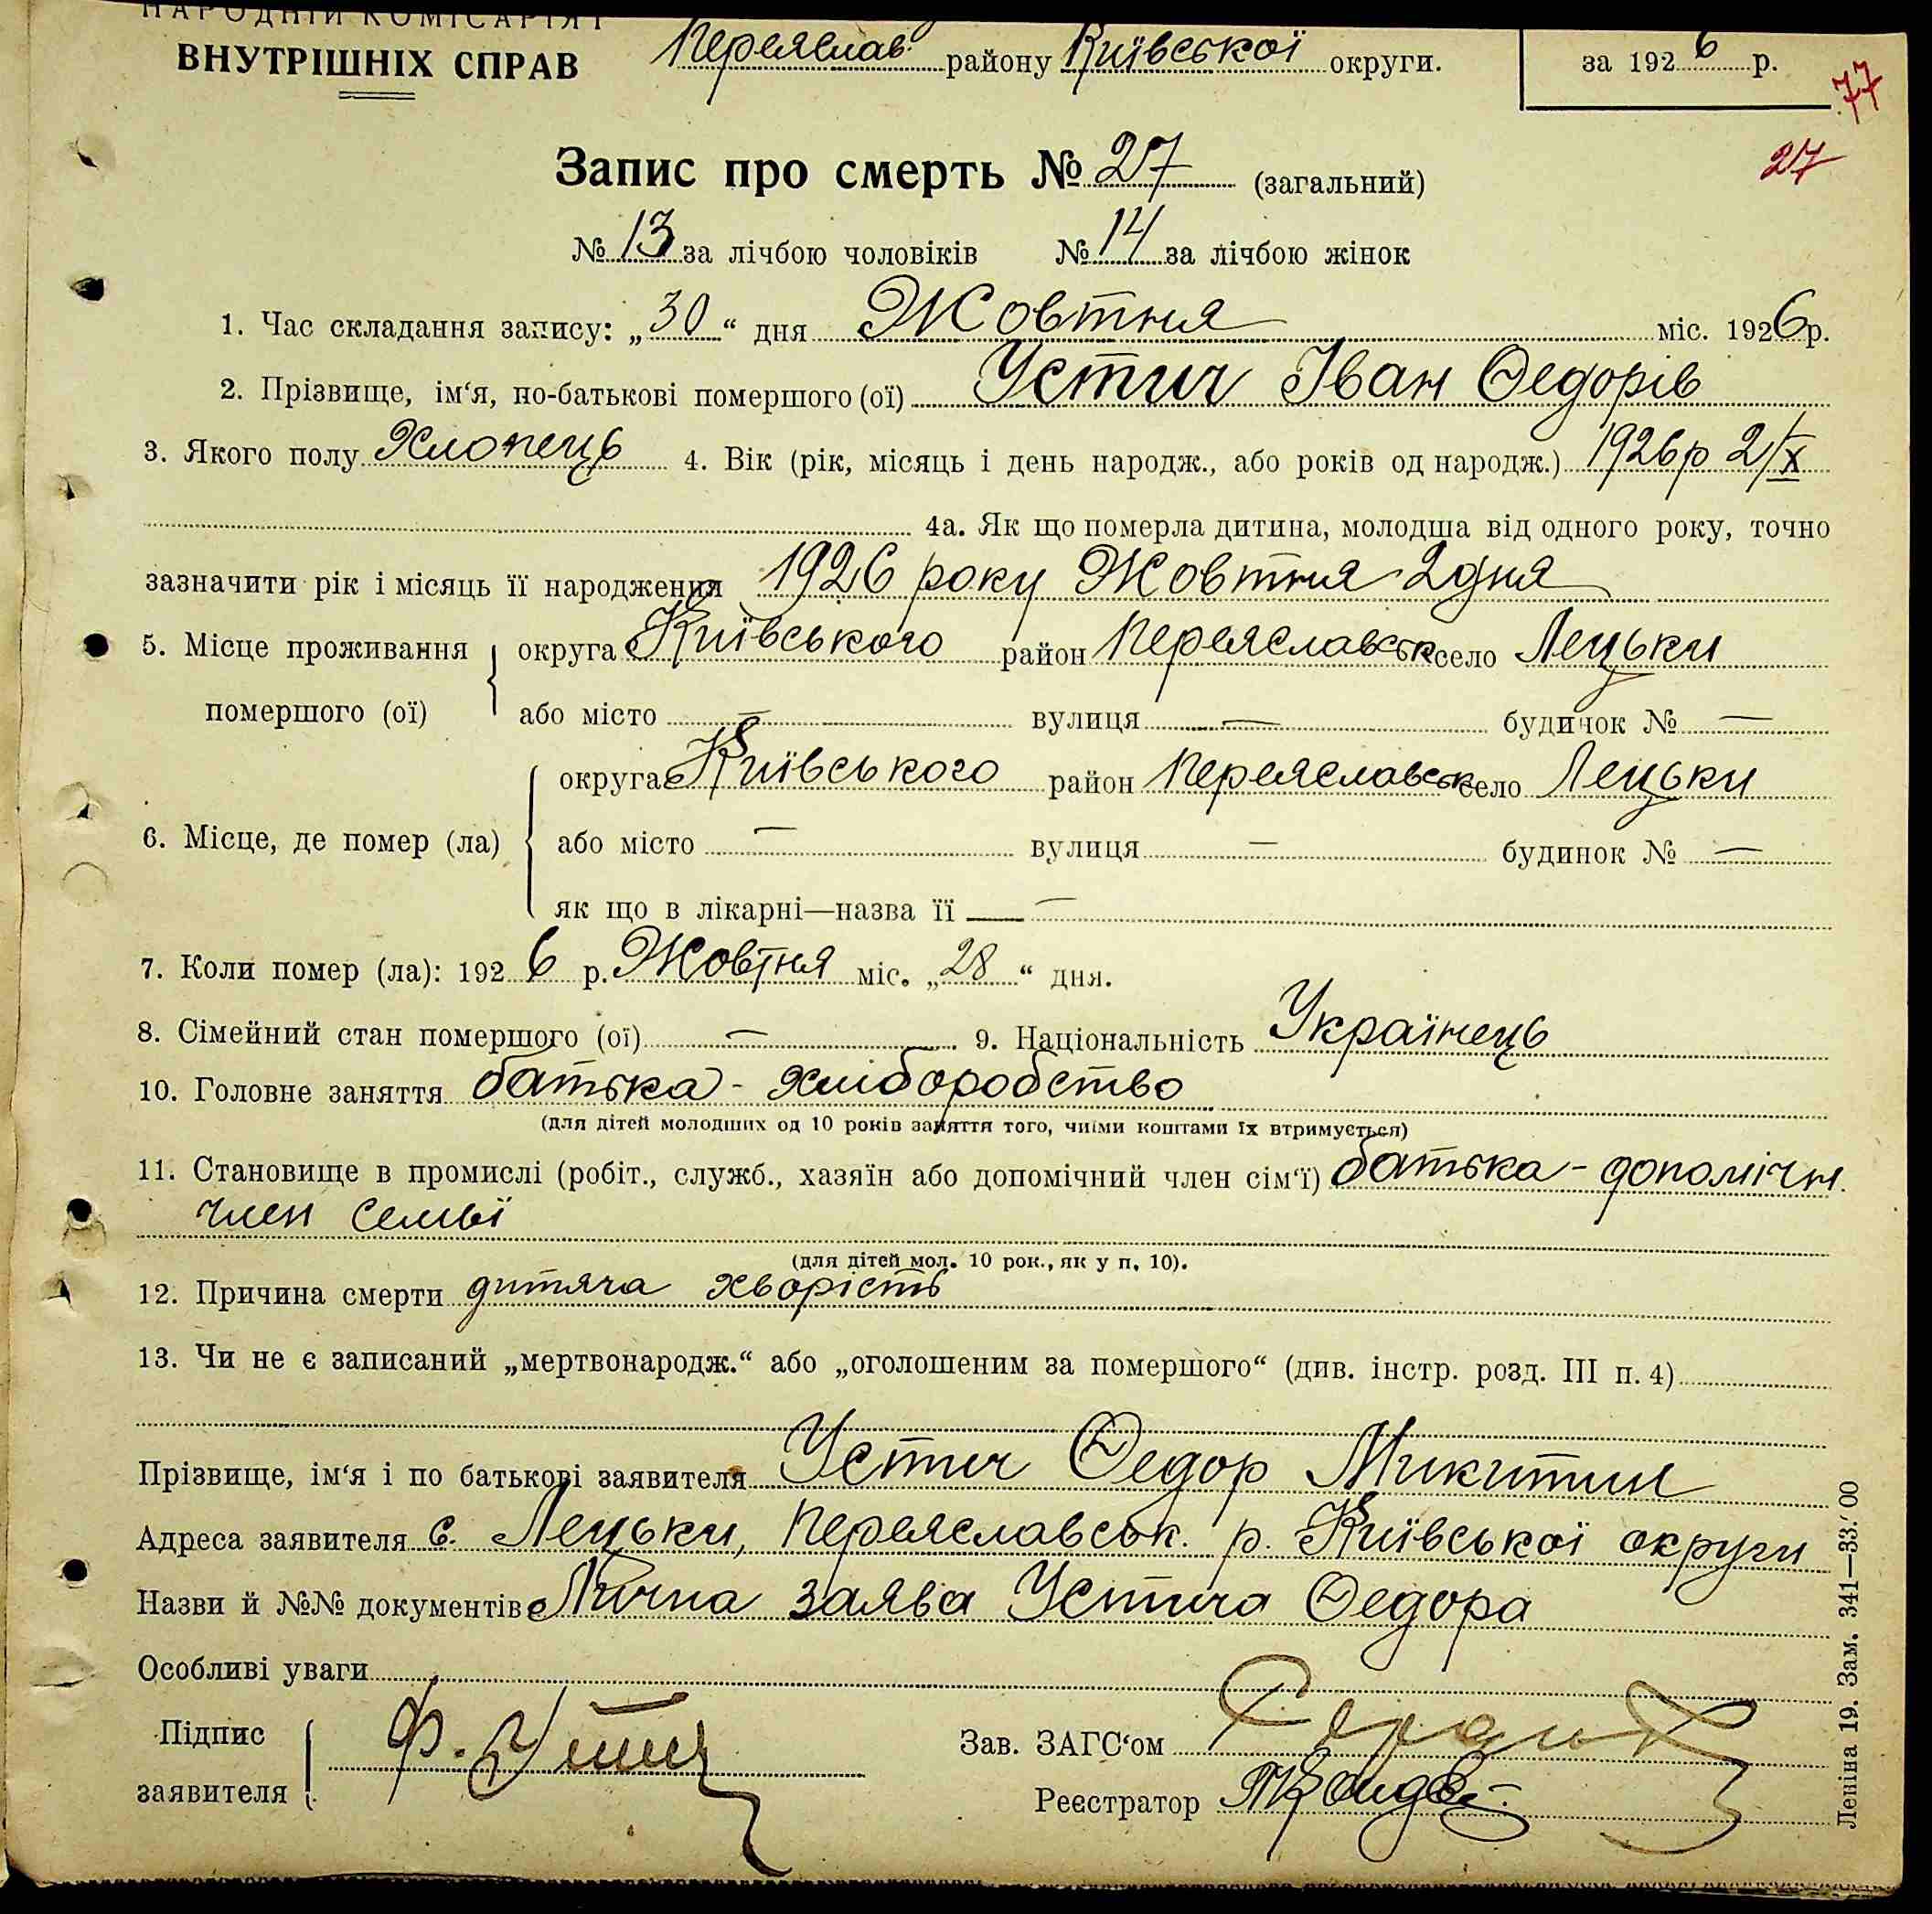 НАРОДНІЙ КОМІСАРІЯТ
ВНУТРІШНІХ СПРАВ
Переяслав району Київської округи.
за 1926 р.
77
27
Запис про смерть № 27 (загальний)
№ 13 за лічбою чоловіків № 14 за лічбою жінок
1. Час складання запису: „30“ дня Жовтня міс. 1926 р.
2. Прізвище, ім‘я, по-батькові помершого (ої) Устич Іван Федорів
3. Якого полу Хлопець 4. Вік (рік, місяць і день народж., або років од народж.) 1926 р 2/X
4а. Як що померла дитина, молодша від одного року, точно
зазначити рік і місяць її народження 1926 року Жовтня 2 дня
5. Місце проживання округа Київського район Переяславськ село Лецьки
помершого (ої) або місто — вулиця — будинок № —
округа Київського район Переяславськ село Лецьки
6. Місце, де помер (ла) або місто — вулиця — будинок № —
як що в лікарні—назва її —
7. Коли помер (ла): 1926 р. Жовтня міс. „28“ дня.
8. Сімейний стан помершого (ої) — 9. Національність Українець
10. Головне заняття батька - хліборобство
(для дітей молодших од 10 років заняття того, чиїми коштами їх втримується)
11. Становище в промислі (робіт., служб., хазяїн або допомічний член сім‘ї) батька - допомічн.
член семьї
(для дітей мол. 10 рок., як у п. 10).
12. Причина смерти дитяча хворість
13. Чи не є записаний „мертвонародж.“ або „оголошеним за помершого“ (див. інстр. розд. III п. 4)
Прізвище, ім‘я і по батькові заявителя Устич Федор Микитин
Адреса заявителя с. Лецьки, Переяславськ. р. Київської округи
Назви й №№ документів Лична заява Устича Федора
Особливі уваги
Підпис
заявителя Ф. Устич
Зав. ЗАГС‘ом
Реєстратор
Леніна 19. Зам. 341—33.‘00